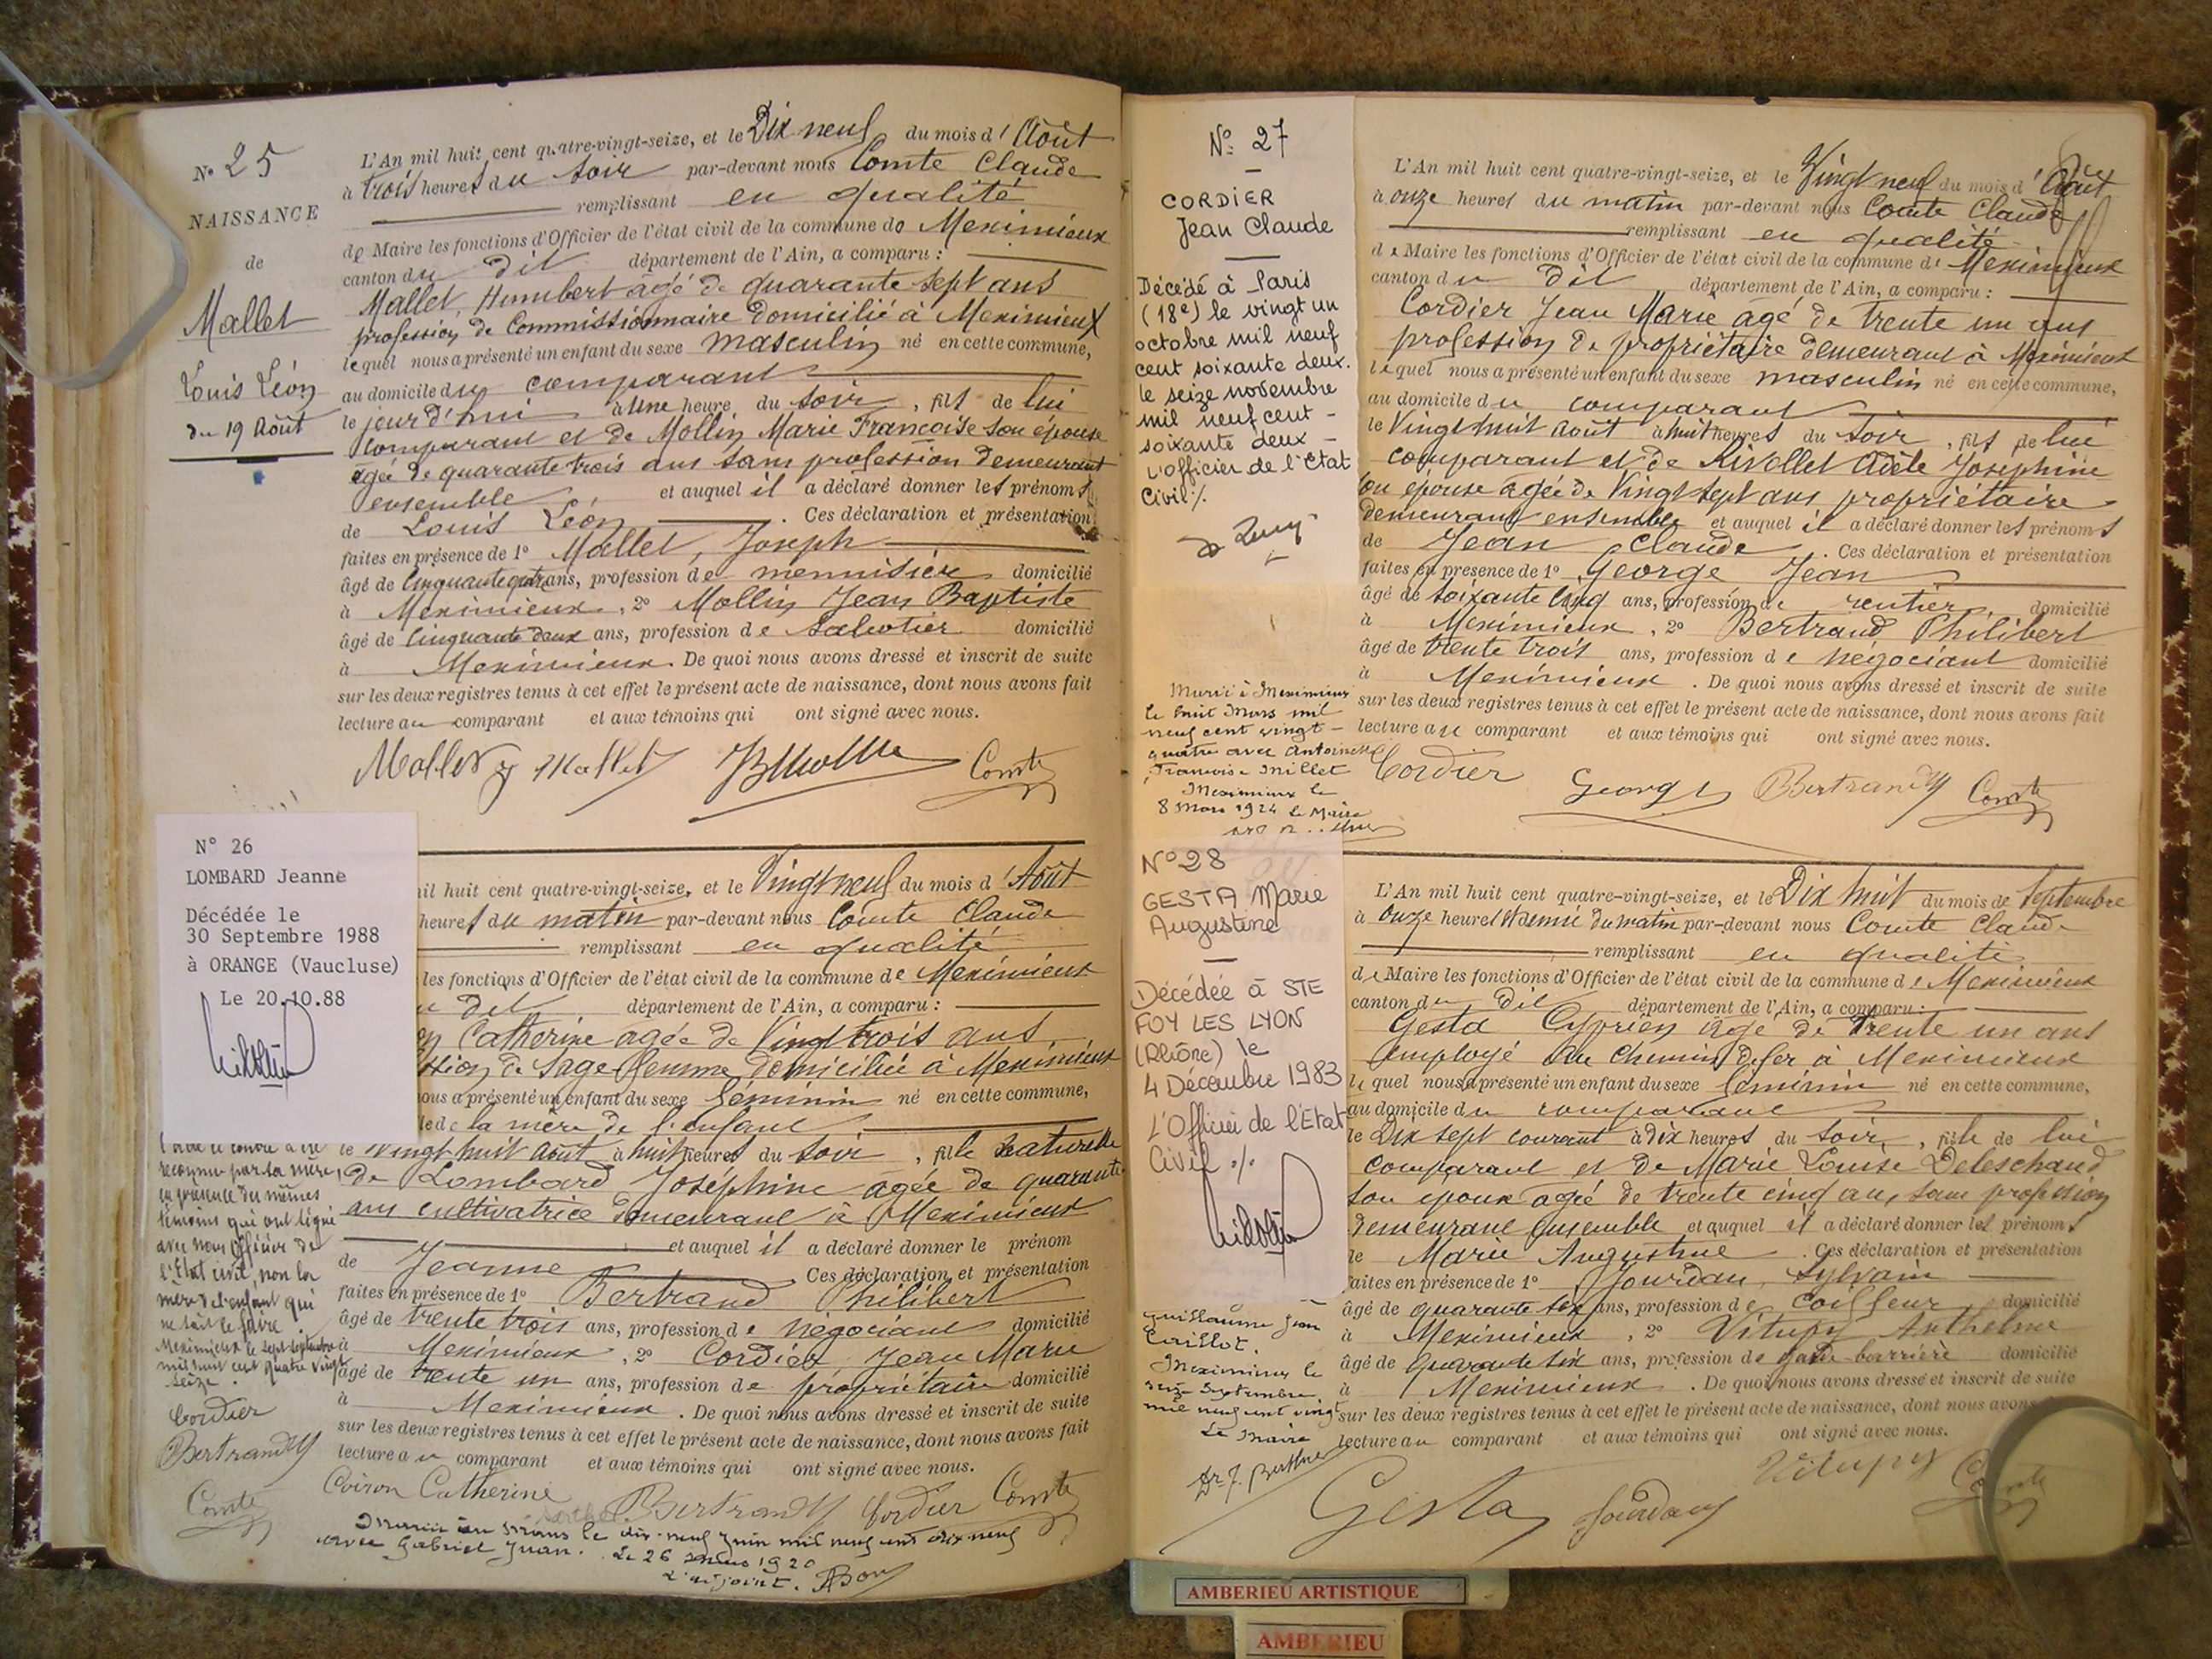 N° 25
NAISSANCE
de
Mallet
Louis Léon
du 19 Août
L'An mil huit cent quatre-vingt-seize, et le Dix neuf du mois d'Août
à trois heures du soir par-devant nous Comte Claude
remplissant en qualité
de Maire les fonctions d'Officier de l'état civil de la commune de Meximieux
canton du dit département de l'Ain, a comparu :
Mallet, Humbert agé de quarante sept ans
profession de Commissionnaire domicilié à Meximieux
lequel nous a présenté un enfant du sexe masculin né en cette commune,
au domicile du comparant
le jour d'hui à Une heure du soir, fils de lui
comparant et de Mollin Marie Francoise son épouse
agée de quarante trois ans sans profession demeurant
ensemble et auquel il a déclaré donner les prénoms
de Louis Léon. Ces déclaration et présentation
faites en présence de 1° Mallet, Joseph
âgé de ans, profession de menuisier domicilié
à Meximieux, 2° Mollin Jean Baptiste
âgé de Cinquante deux ans, profession de sabotier domicilié
à Meximieux. De quoi nous avons dressé et inscrit de suite
sur les deux registres tenus à cet effet le présent acte de naissance, dont nous avons fait
lecture au comparant et aux témoins qui ont signé avec nous.
Mallet Comte
N° 26
LOMBARD Jeanne
Décédée le
30 Septembre 1988
à ORANGE (Vaucluse)
Le 20.10.88
il huit cent quatre-vingt-seize, et le Vingt neuf du mois d'Août
heures du matin par-devant nous Comte Claude
remplissant en qualité
les fonctions d'Officier de l'état civil de la commune de Meximieux
u dit département de l'Ain, a comparu :
Catherine agée de Vingt trois ans
de Sage femme domiciliée à Meximieux
ous a présenté un enfant du sexe féminin né en cette commune,
de la mère de l'enfant
le Vingt huit Août à huit heures du soir, fille naturelle
de Lombard Joséphine agée de quarante
ans cultivatrice demeurant à Meximieux
et auquel il a déclaré donner le prénom
de Jeanne Ces déclaration et présentation
faites en présence de 1° Bertrand Philibert
âgé de trente trois ans, profession de négociant domicilié
à Meximieux, 2° Cordier Jean Marie
âgé de trente un ans, profession de propriétaire domicilié
à Meximieux. De quoi nous avons dressé et inscrit de suite
sur les deux registres tenus à cet effet le présent acte de naissance, dont nous avons fait
lecture au comparant et aux témoins qui ont signé avec nous.
Coiron Catherine Bertrand Cordier Comte
reconnue par sa mère
en présence des mêmes
témoins qui ont signé
avec nous Officier de
l'Etat civil, non la
mère de l'enfant qui
ne sait le faire.
Meximieux le sept septembre
mil huit cent quatre vingt
seize.
Cordier
Bertrand
Comte
le dix-neuf Juin mil neuf cent dix-neuf
avec Gabriel Juan. Le 26 1920
L'adjoint.
N° 27
CORDIER
Jean Claude
Décédé à Paris
(18e) le vingt un
octobre mil neuf
cent soixante deux.
le seize novembre
mil neuf cent -
soixante deux -
L'officier de l'Etat
Civil ./.
Marié à Meximieux
le huit Mars mil
neuf cent vingt-
quatre avec Antoinette
Françoise Millet
Meximieux le
8 Mars 1924 Le Maire
L'An mil huit cent quatre-vingt-seize, et le Vingt neuf du mois d'Août
à onze heures du matin par-devant nous Comte Claude
remplissant en qualité
de Maire les fonctions d'Officier de l'état civil de la commune de Meximieux
canton du dit département de l'Ain, a comparu :
Cordier Jean Marie agé de trente un ans
profession de propriétaire demeurant à Meximieux
lequel nous a présenté un enfant du sexe masculin né en cette commune,
au domicile du comparant
le Vingt huit Août à huit heures du soir, fils de lui
comparant et de Rivollet Adèle Josephine
son épouse agée de Vingt sept ans propriétaire
demeurant ensemble et auquel il a déclaré donner les prénoms
de Jean Claude. Ces déclaration et présentation
faites en présence de 1° George Jean
âgé de soixante cinq ans, profession de rentier, domicilié
à Meximieux, 2° Bertrand Philibert
âgé de trente trois ans, profession de négociant domicilié
à Meximieux. De quoi nous avons dressé et inscrit de suite
sur les deux registres tenus à cet effet le présent acte de naissance, dont nous avons fait
lecture au comparant et aux témoins qui ont signé avec nous.
Cordier George Bertrand Comte
N° 28
GESTA Marie
Augustine
Décédée à STE
FOY LES LYON
(Rhône) le
4 Décembre 1983
L'Officier de l'Etat
Civil ./.
Guillaume Jean
Caillot.
Meximieux le
Septembre
mil neuf cent vingt
Le Maire
L'An mil huit cent quatre-vingt-seize, et le Dix huit du mois de Septembre
à onze heures et demie du matin par-devant nous Comte Claude
remplissant en qualité
de Maire les fonctions d'Officier de l'état civil de la commune de Meximieux
canton du dit département de l'Ain, a comparu :
Gesta Cyprien agé de trente un ans
employé au chemin de fer à Meximieux
lequel nous a présenté un enfant du sexe féminin né en cette commune,
au domicile du comparant
le Dix sept courant à dix heures du soir, fille de lui
comparant et de Marie Louise Deleschaud
son epoux agée de trente cinq ans, sans profession
demeurant ensemble et auquel il a déclaré donner les prénoms
de Marie Augustine. Ces déclaration et présentation
faites en présence de 1° Jourdan, Sylvain
âgé de quarante six ans, profession de coiffeur, domicilié
à Meximieux, 2° Vitupy Anthelme
âgé de quarante six ans, profession de garde-barrière domicilié
à Meximieux. De quoi nous avons dressé et inscrit de suite
sur les deux registres tenus à cet effet le présent acte de naissance, dont nous avons
lecture au comparant et aux témoins qui ont signé avec nous.
Gesta Jourdan Vitupy Comte
AMBERIEU ARTISTIQUE
AMBERIEU